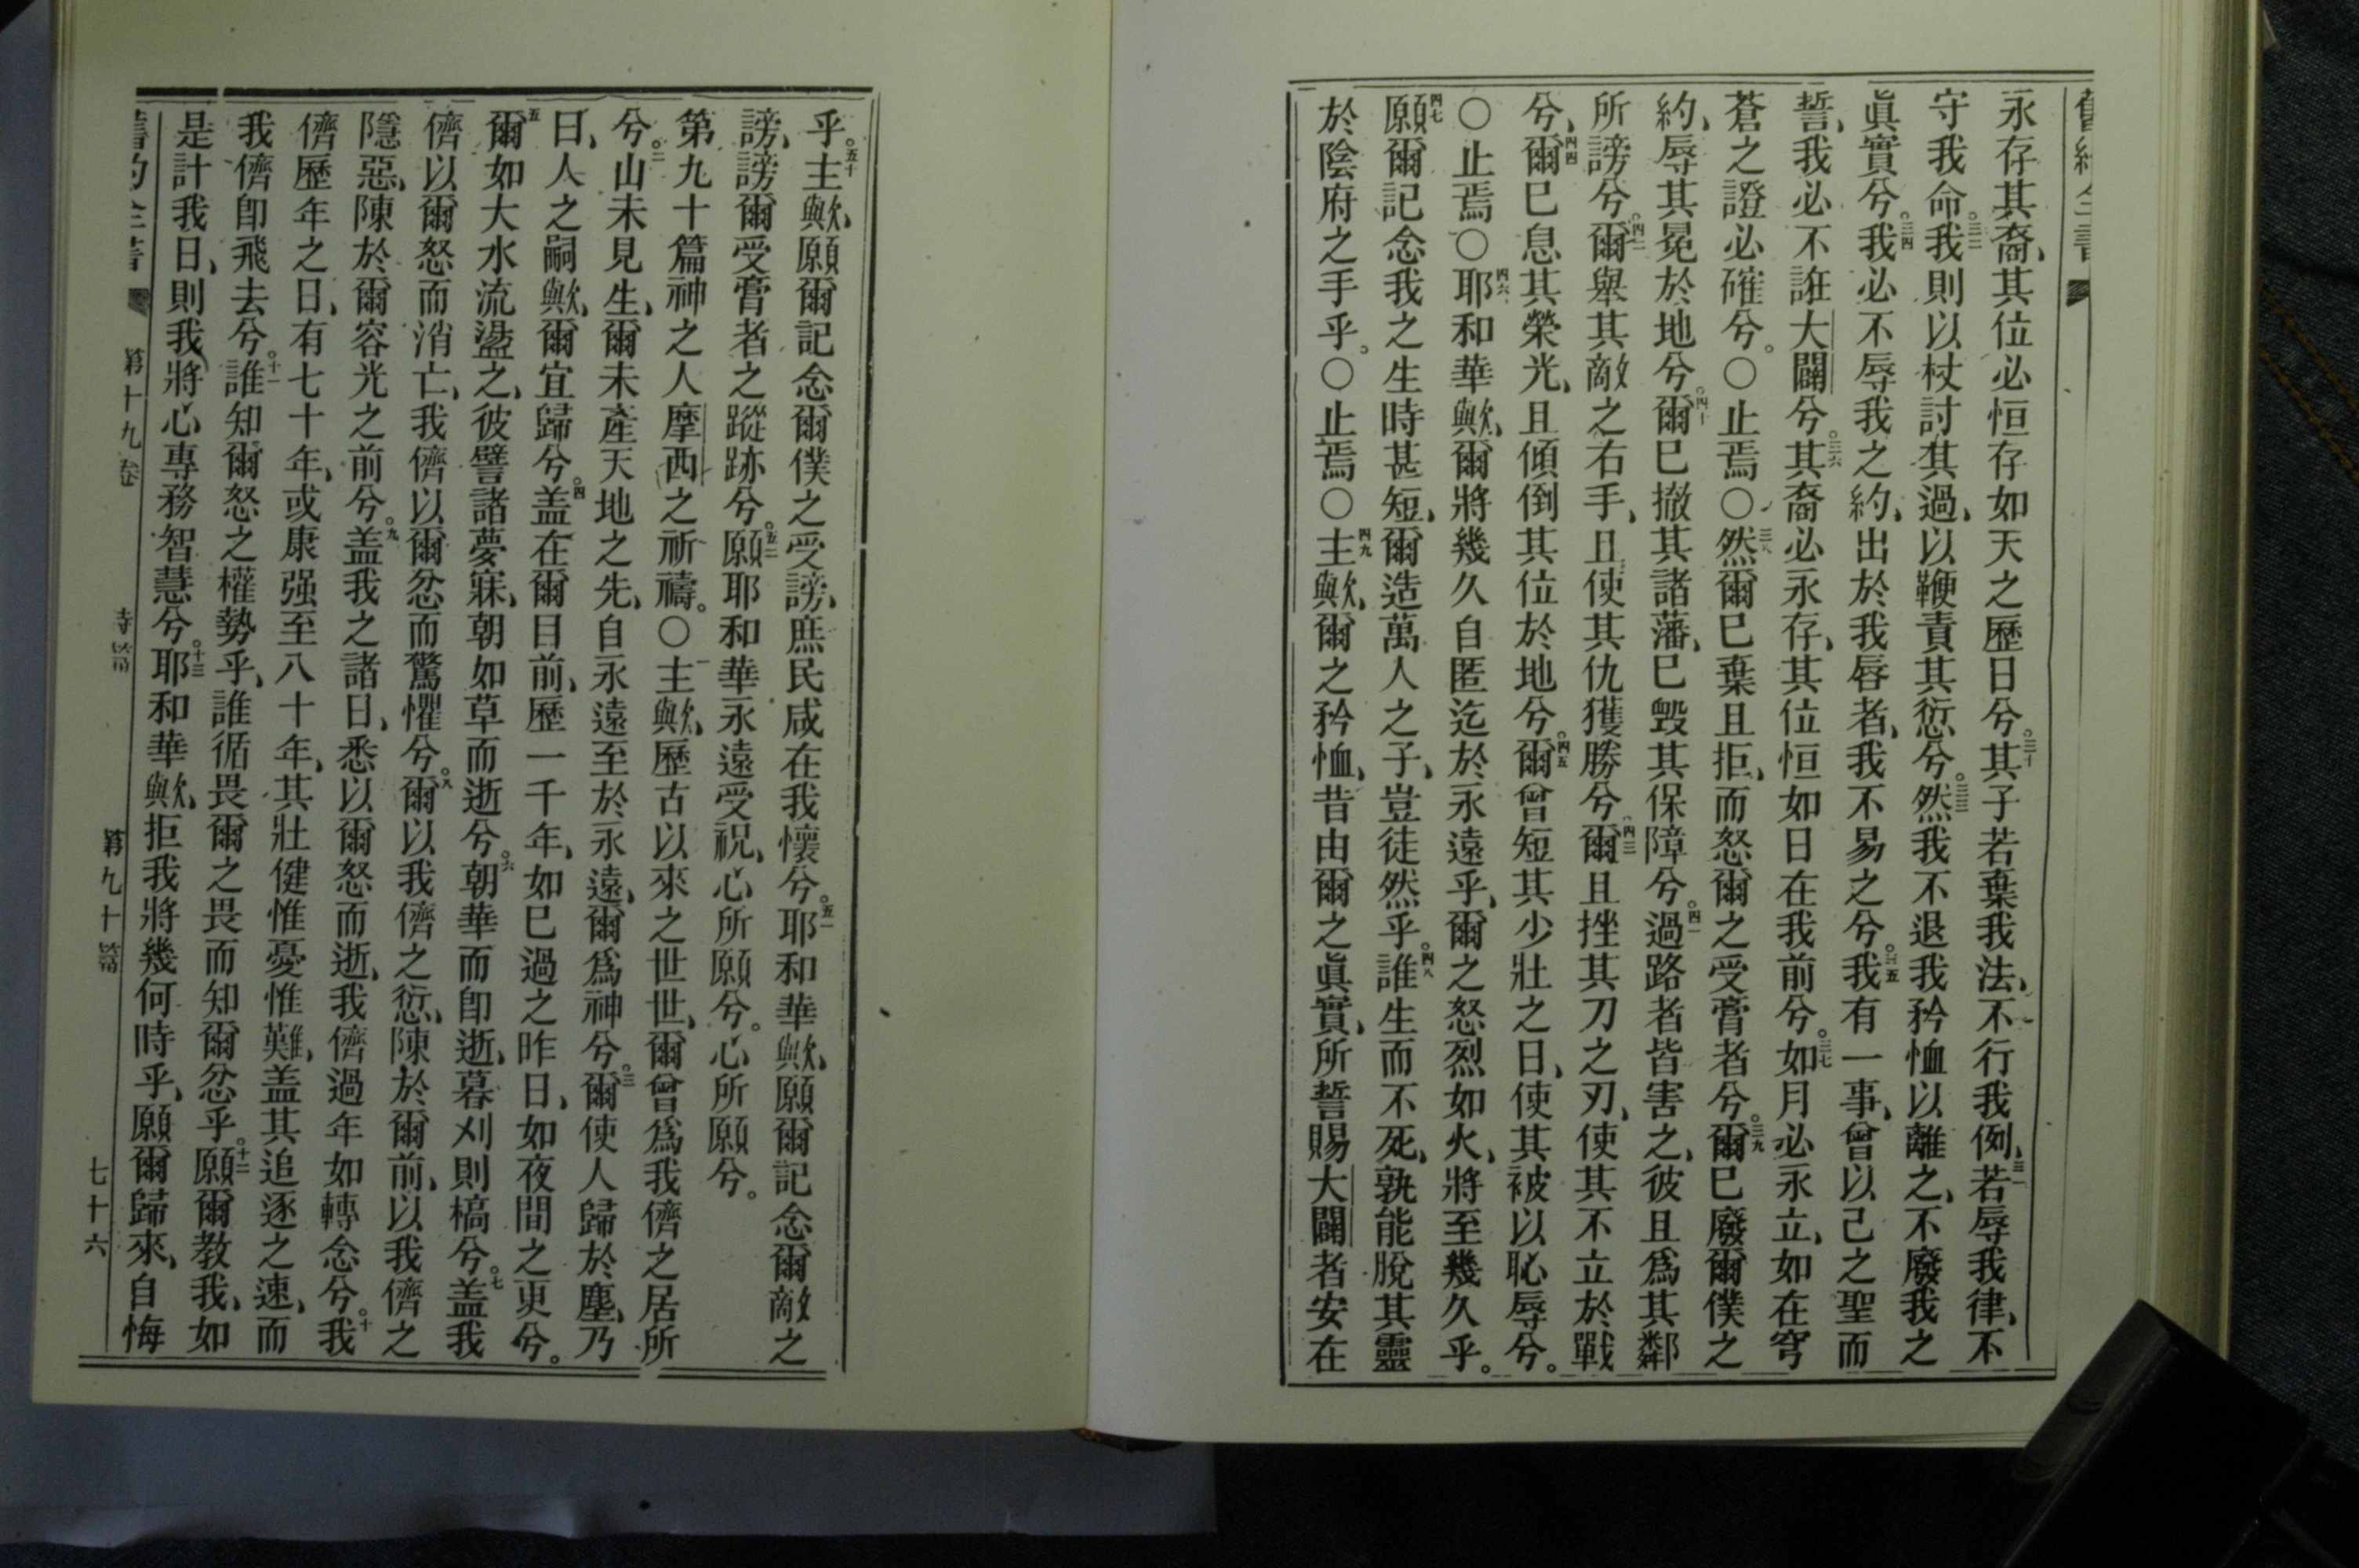 舊約全書
永存其裔、其位必恒存如天之歷日兮。三十其子若棄我法、不行我例、三一若辱我律、不
守我命。三二我則以杖討其過、以鞭責其愆兮。三三然我不退我矜恤以離之、不廢我之
眞實兮。三四我必不辱我之約、出於我唇者、我不易之兮。三五我有一事、曾以己之聖而
誓、我必不誑大闢兮。三六其裔必永存、其位恒如日在我前兮。三七如月必永立、如在穹
蒼之證必確兮。○止焉○三八然爾已棄且拒、而怒爾之受膏者兮。三九爾已廢爾僕之
約、辱其冕於地兮。四十爾已撤其諸藩、已毀其保障兮。四一過路者皆害之、彼且爲其鄰
所謗兮。四二爾舉其敵之右手、且使其仇獲勝兮。四三爾且挫其刀之刃、使其不立於戰
兮、四四爾已息其榮光、且傾倒其位於地兮。四五爾曾短其少壯之日、使其被以恥辱兮。
○止焉○四六耶和華歟、爾將幾久自匿迄於永遠乎、爾之怒烈如火、將至幾久乎。
四七願爾記念我之生時甚短、爾造萬人之子、豈徒然乎。四八誰生而不死、孰能脫其靈
於陰府之手乎。○止焉○四九主歟、爾之矜恤、昔由爾之眞實、所誓賜大闢者安在
乎。五十主歟、願爾記念爾僕之受謗、庶民咸在我懷兮。五一耶和華歟、願爾記念爾敵之
謗、謗爾受膏者之蹤跡兮。五二願耶和華永遠受祝、心所願兮。心所願兮。
第九十篇神之人摩西之祈禱。○一主歟、歷古以來之世世、爾曾爲我儕之居所
兮。二山未見生、爾未產天地之先、自永遠至於永遠、爾爲神兮。三爾使人歸於塵、乃
曰、人之嗣歟、爾宜歸兮。四盖在爾目前、歷一千年、如已過之昨日、如夜間之更兮。
五爾如大水流盪之、彼譬諸夢寐、朝如草而逝兮。六朝華而卽逝、暮刈則槁兮。七盖我
儕以爾怒而消亡、我儕以爾忿而驚懼兮。八爾以我儕之愆、陳於爾前、以我儕之
隱惡、陳於爾容光之前兮。九盖我之諸日、悉以爾怒而逝、我儕過年如轉念兮。十我
儕歷年之日、有七十年、或康强至八十年、其壯健惟憂惟難、盖其追逐之速、而
我儕卽飛去兮。十一誰知爾怒之權勢乎、誰循畏爾之畏而知爾忿乎。十二願爾教我、如
是計我日、則我將心專務智慧兮。十三耶和華歟、拒我將幾何時乎、願爾歸來、自悔
舊約全書 第十九卷 詩篇 第九十篇 七十六